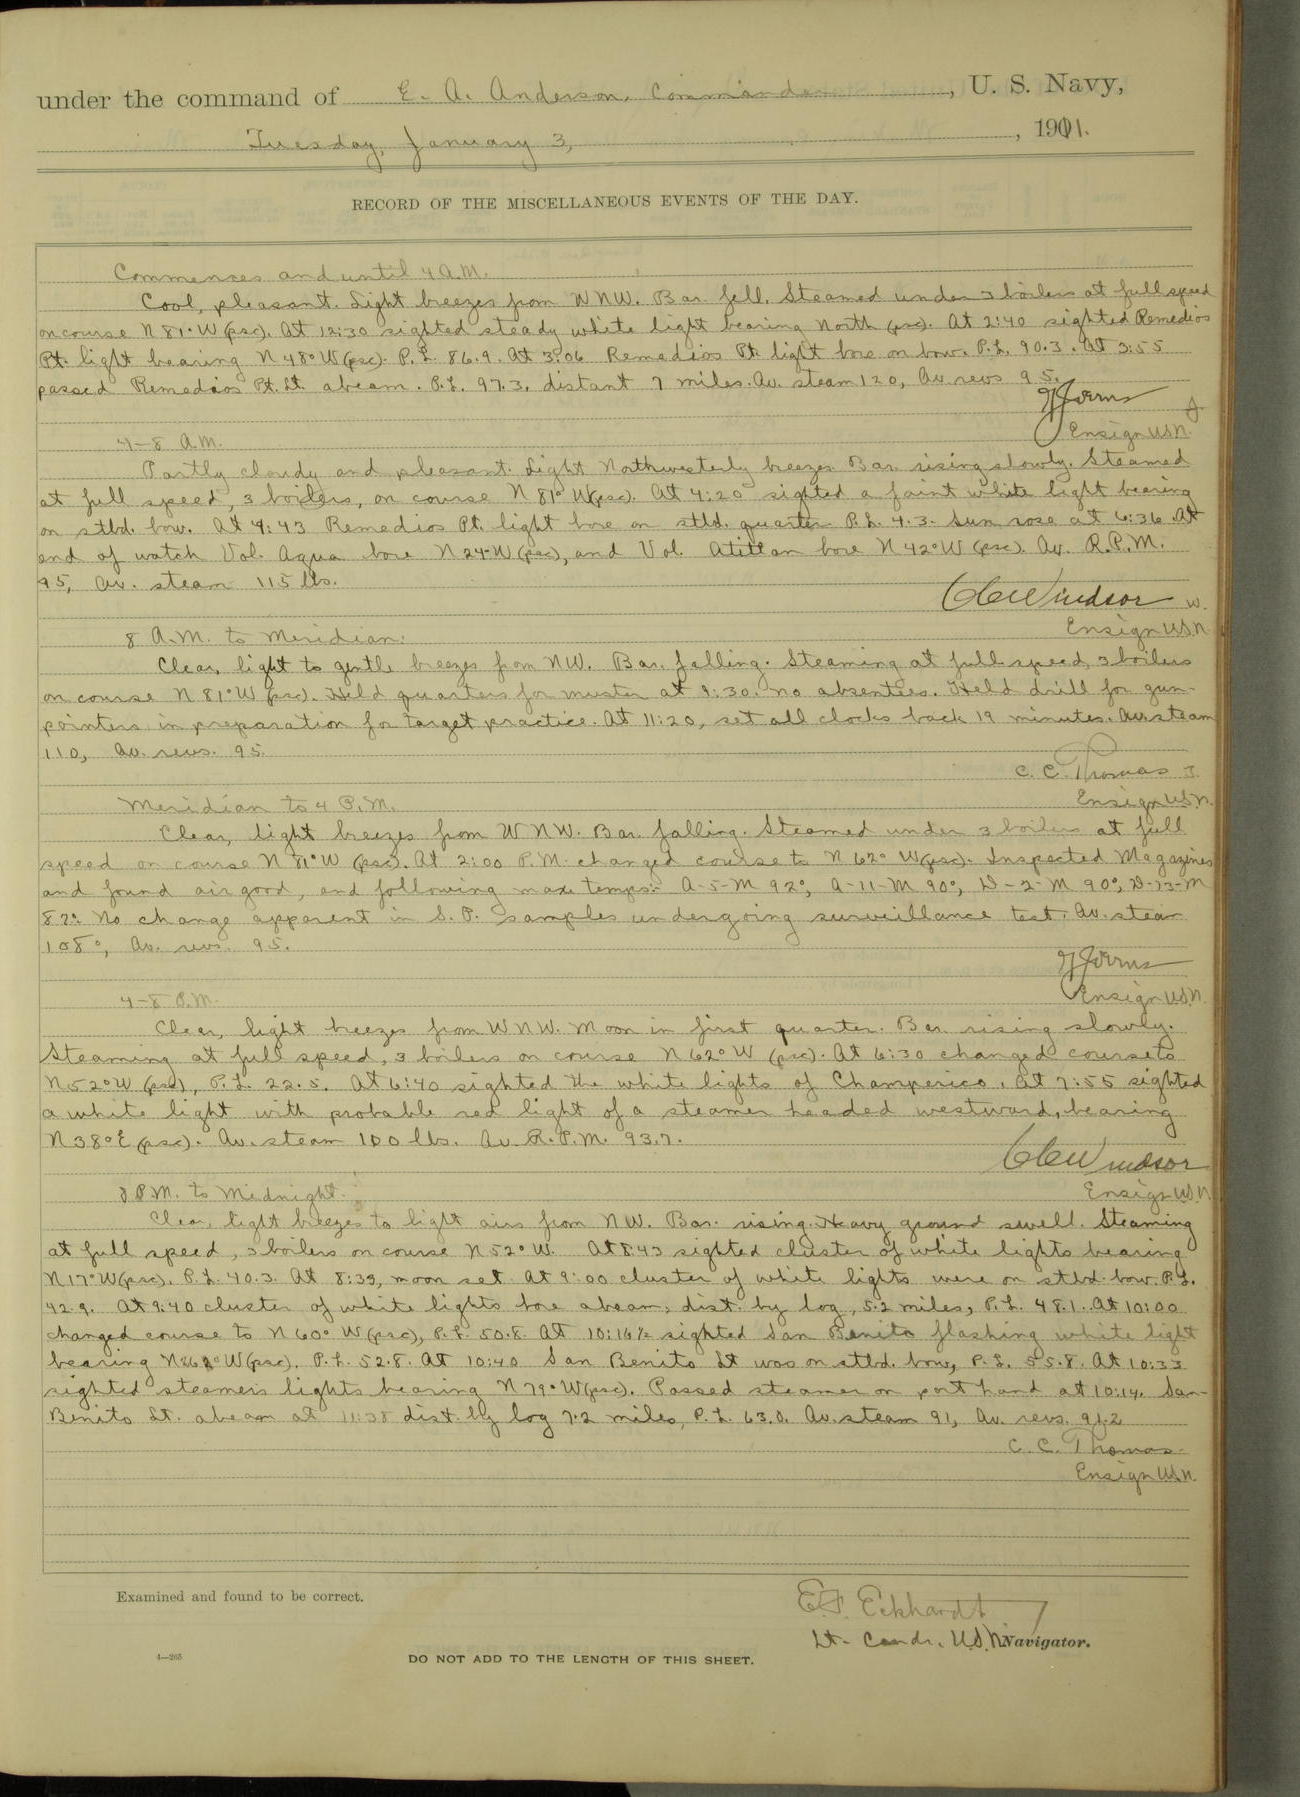 under the command of E. A. Anderson, Commander, U. S. Navy,
Tuesday, January 3, 1911.
RECORD OF THE MISCELLANEOUS EVENTS OF THE DAY.
Commences and until 4 A.M.
Cool, pleasant. Light breezes from WNW. Bar. fell. Steamed under 3 boilers at full speed
on course N 81° W (psc). At 12:30 sighted steady white light bearing North (psc). At 2:40 sighted Remedios
Pt. light bearing N 48° W (psc). P.L. 86.9. At 3:06 Remedios Pt. light bore on bow. P.L. 90.3. At 3:55
passed Remedios Pt. Lt. abeam. P.L. 97.3, distant 7 miles. Av. steam 120, Av. revs 95.
Ensign U.S.N.
4-8 A.M.
Partly cloudy and pleasant. Light Northwesterly breezes. Bar. rising slowly. Steamed
at full speed, 3 boilers, on course N 81° W (psc). At 4:20 sighted a faint white light bearing
on stbd. bow. At 4:43 Remedios Pt. light bore on stbd. quarter P.L. 4.3. Sun rose at 6:36. At
end of watch Vol. Agua bore N 24° W (psc), and Vol. Atitlan bore N 42° W (psc). Av. R.P.M.
95, Av. steam 115 lbs.
Windsor W.
Ensign U.S.N.
8 A.M. to Meridian:
Clear, light to gentle breezes from NW. Bar. falling. Steaming at full speed, 3 boilers
on course N 81° W (psc). Held quarters for muster at 9:30. No absentees. Held drill for gun-
pointers in preparation for target practice. At 11:20, set all clocks back 19 minutes. Av. steam
110, Av. revs. 95.
C. C. Thomas
Ensign U.S.N.
Meridian to 4 P.M.
Clear, light breezes from WNW. Bar. falling. Steamed under 3 boilers at full
speed on course N 81° W (psc). At 2:00 P.M. changed course to N 62° W (psc). Inspected Magazines
and found air good, and following max temps:- A-5-M 92°, A-11-M 90°, D-2-M 90°, D-13-M
82°. No change apparent in S.P. samples undergoing surveillance test. Av. steam
108°, Av. revs. 95.
Ensign U.S.N.
4-8 P.M.
Clear, light breezes from WNW. Moon in first quarter. Bar. rising slowly.
Steaming at full speed, 3 boilers on course N 62° W (psc). At 6:30 changed course to
N 52° W (psc), P.L. 22.5. At 6:40 sighted the white lights of Champerico. At 7:55 sighted
a white light with probable red light of a steamer headed westward, bearing
N 38° E (psc). Av. steam 100 lbs. Av. R.P.M. 93.7.
Windsor
Ensign U.S.N.
8 P.M. to Midnight.
Clear, light breezes to light airs from NW. Bar. rising. Heavy ground swell. Steaming
at full speed, 3 boilers on course N 52° W. At 8:43 sighted cluster of white lights bearing
N 17° W (psc). P.L. 40.3. At 8:39, moon set. At 9:00 cluster of white lights were on stbd. bow. P.L.
42.9. At 9:40 cluster of white lights bore abeam, dist. by log, 5.2 miles, P.L. 48.1. At 10:00
changed course to N 60° W (psc), P.L. 50.8. At 10:16½ sighted San Benito flashing white light
bearing W (psc). P.L. 52.8. At 10:40 San Benito Lt was on stbd. bow, P.L. 55.8. At 10:33
sighted steamer's lights bearing N 79° W (psc). Passed steamer on port hand at 10:14. San
Benito Lt. abeam at 11:38 dist. by log 7.2 miles, P.L. 63.0. Av. steam 91, Av. revs. 91.2
C. C. Thomas
Ensign U.S.N.
Examined and found to be correct.
E. F. Eckhardt
Lt-Comdr. U.S.N. Navigator.
4—265
DO NOT ADD TO THE LENGTH OF THIS SHEET.